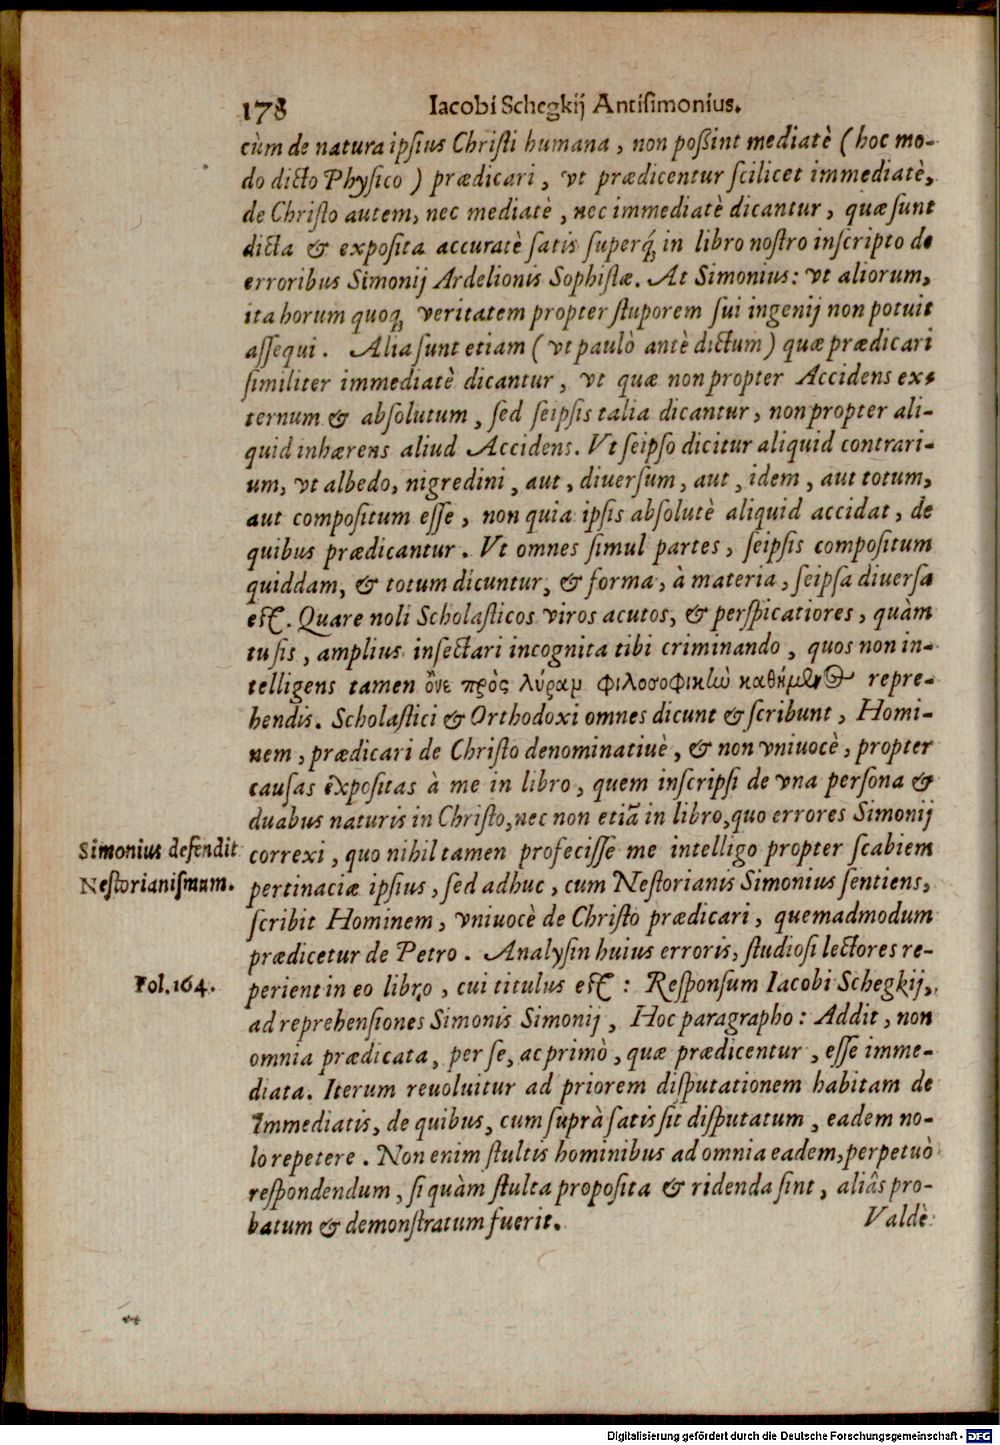 178 Iacobi Schegkij Antiſimonius.
cùm de natura ipſius Chriſti humana, non poßint mediatè (hoc mo-
do dicto Phyſico) prædicari, vt prædicentur ſcilicet immediatè,
de Chriſto autem, nec mediatè, nec immediatè dicantur, quæ ſunt
dicta & expoſita accuratè ſatis ſuperq́; in libro noſtro inſcripto de
erroribus Simonij Ardelionis Sophiſtæ. At Simonius: vt aliorum,
ita horum quoq; veritatem propter ſtuporem ſui ingenij non potuit
aſſequi. Alia ſunt etiam (vt paulò antè dictum) quæ prædicari
ſimiliter immediatè dicantur, vt quæ non propter Accidens ex-
ternum & abſolutum, ſed ſeipſis talia dicantur, non propter ali-
quid inhærens aliud Accidens. Vt ſeipſo dicitur aliquid contrari-
um, vt albedo, nigredini, aut, diuerſum, aut, idem, aut totum,
aut compoſitum eſſe, non quia ipſis abſolutè aliquid accidat, de
quibus prædicantur. Vt omnes ſimul partes, ſeipſis compoſitum
quiddam, & totum dicuntur, & forma, à materia, ſeipſa diuerſa
eſt. Quare noli Scholaſticos viros acutos, & perſpicatiores, quàm
tu ſis, amplius inſectari incognita tibi criminando, quos non in-
telligens tamen ὄνε πρὸς λύραμ φιλοσοφικῶ καθήμενος repre-
hendis. Scholaſtici & Orthodoxi omnes dicunt & ſcribunt, Homi-
nem, prædicari de Chriſto denominatiuè, & non vniuocè, propter
cauſas expoſitas à me in libro, quem inſcripſi de vna perſona &
duabus naturis in Chriſto, nec non etiã in libro, quo errores Simonij
Simonius defendit Neſtorianiſmum.
correxi, quo nihil tamen profeciſſe me intelligo propter ſcabiem
pertinaciæ ipſius, ſed adhuc, cum Neſtorianis Simonius ſentiens,
ſcribit Hominem, vniuocè de Chriſto prædicari, quemadmodum
prædicetur de Petro. Analyſin huius erroris, ſtudioſi lectores re-
Fol. 164.
perient in eo libro, cui titulus eſt: Reſponſum Iacobi Schegkij,
ad reprehenſiones Simonis Simonij, Hoc paragrapho: Addit, non
omnia prædicata, per ſe, ac primò, quæ prædicentur, eſſe imme-
diata. Iterum reuoluitur ad priorem diſputationem habitam de
Immediatis, de quibus, cum ſuprà ſatis ſit diſputatum, eadem no-
lo repetere. Non enim ſtultis hominibus ad omnia eadem, perpetuò
reſpondendum, ſi quàm ſtulta propoſita & ridenda ſint, aliâs pro-
batum & demonſtratum fuerit.
Valdè
Digitalisierung gefördert durch die Deutsche Forschungsgemeinschaft - DFG